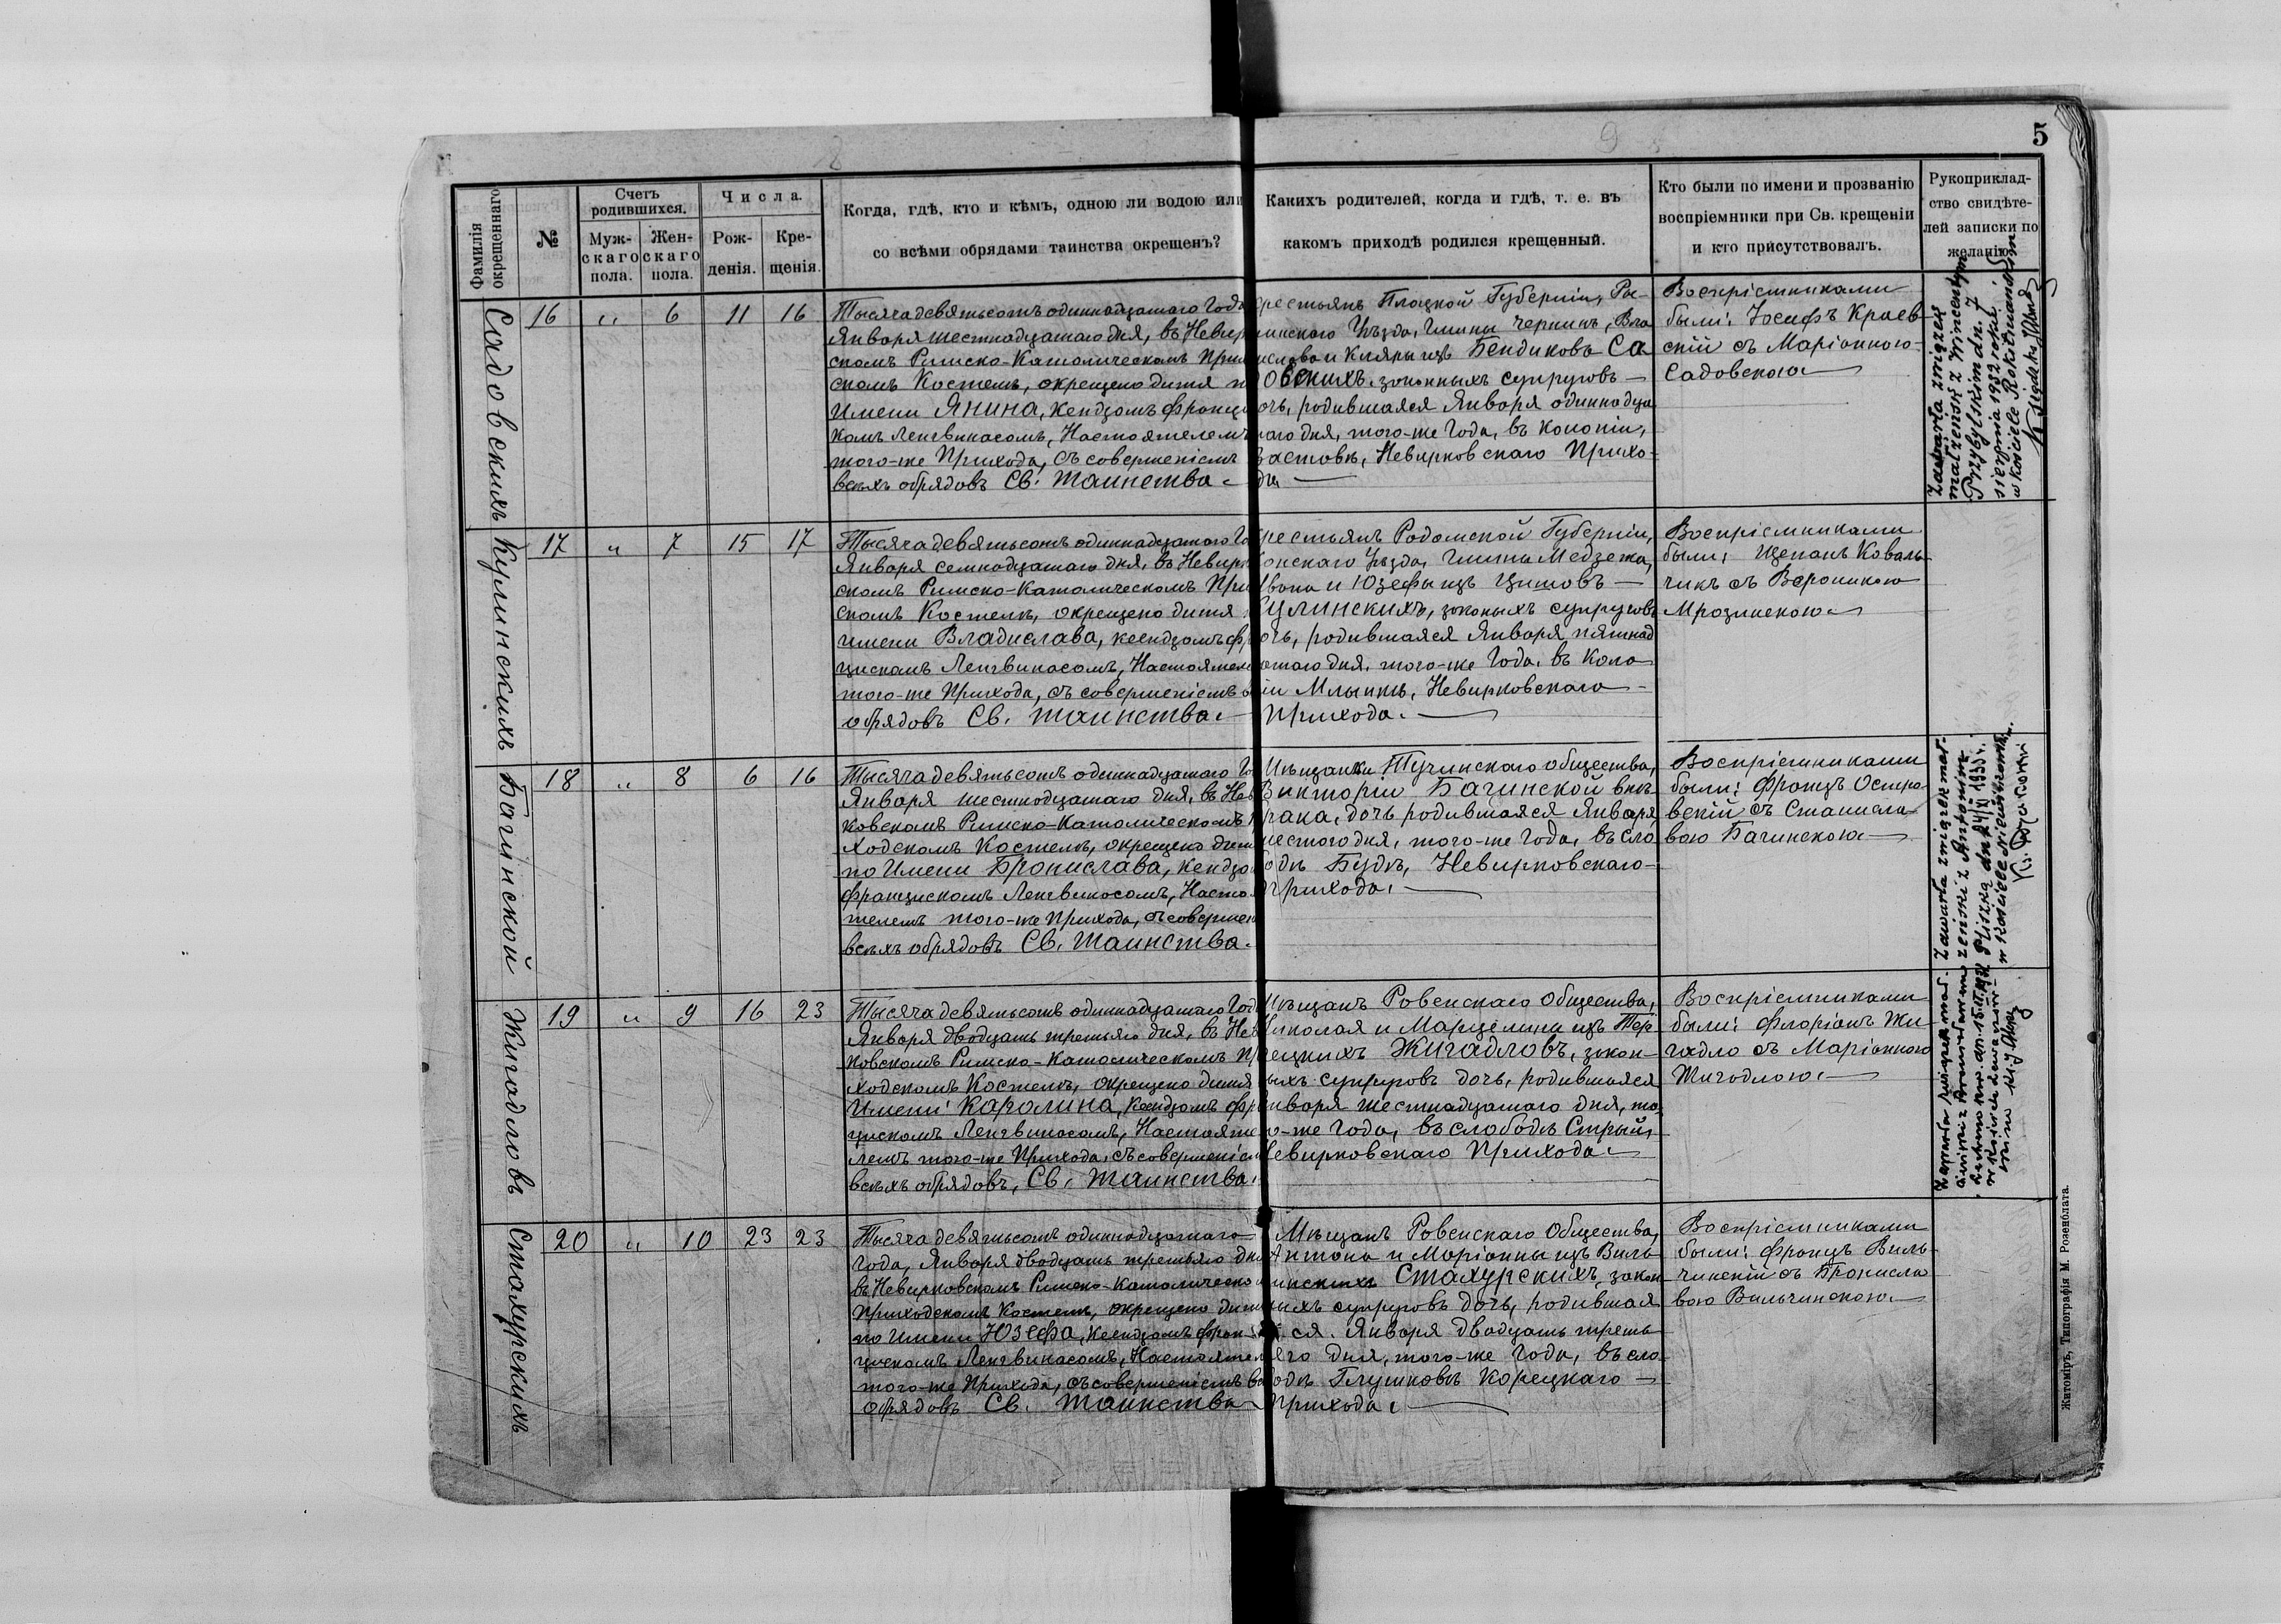 5
Фамилія окрещеннаго
№
Счетъ родившихся.
Муж-скаго пола.
Жен-скаго пола.
Числа.
Рож-денія.
Кре-щенія.
Когда, гдѣ, кто и кѣмъ, одною ли водою или
со всѣми обрядами таинства окрещенъ?
Какихъ родителей, когда и гдѣ, т. е. въ
какомъ приходѣ родился крещенный.
Кто были по имени и прозванію
воспріемники при Св. крещеніи
и кто присутствовалъ.
Рукоприклад-
ство свидѣте-
лей записки по
желанію
Садовскихъ
16 „ 6 11 16
Тысяча девятьсотъ одиннадцатаго Года
Января шестнадцатаго дня, въ Невир
скомъ Римско-Католическомъ При
скомъ Костелѣ, окрещено дитя п
Имени Янина, Кендзомъ Франци
комъ Ленгвинасомъ, Настоятелемъ
того-же Прихода, съ совершеніемъ
всѣхъ обрядовъ Св. Таинства.
рестьянъ Плоцкой Губерніи, Ры-
пинскаго Уѣзда, Гмины Чернинъ, Вла
ислава и Кляры изъ Бендиковъ Са
довскихъ, законныхъ супруговъ —
очь, родившаяся Января одиннадца
таго дня, того-же Года, въ Колоніи,
Заставѣ, Невирковскаго Прихо-
да —
Воспріемниками
были: Іосифъ Краев-
скій съ Маріанною
Садовскою —
Zawarła związek
małżeńsk z Wincentym
Przybylskim dn. 7
sierpnia 1932 roku,
w kościele Rokitniańskim
Кулинскихъ
17 „ 7 15 17
Тысяча девятьсотъ одиннадцатаго Го
Января семнадцатаго дня, въ Невирк
скомъ Римско-Католическомъ При
скомъ Костелѣ, окрещено дитя п
имени Владислава, Ксендзомъ Фр
цискомъ Ленгвинасомъ, Настоятеле
того-же Прихода, съ совершеніемъ в
обрядовъ Св. Таинства. —
рестьянъ Радомской Губерніи,
онскаго Уѣзда, Гмины Медзежа,
Ивана и Юзефы изъ Цитовъ —
Кулинскихъ, законыхъ супруговъ
очь, родившаяся Января пятнад
цатаго дня, того-же Года, въ Коло
ніи Млынкѣ, Невирковскаго —
Прихода. —
Воспріемниками
были: Щепанъ Коваль-
чикъ съ Вероникою
Мрозинскою —
Багинской
18 „ 8 6 16
Тысяча девятьсотъ одиннадцатаго Го
Января шестнадцатаго дня, въ Нев
ковскомъ Римско-Католическомъ П
ходскомъ Костелѣ, окрещено дит
по Имени Бронислава, Кендзо
Францискомъ Ленгвинасомъ, Насто
телемъ того-же Прихода, съ соверше
всѣхъ обрядовъ Св. Таинства.
Мѣщанки Тучинскаго общества,
Викторіи Багинской внѣ
брака, дочь родившаяся Января
шестого дня, того-же Года, въ сло
бодѣ Будѣ, Невирковскаго —
Прихода, —
Воспріемниками
были: Францъ Остро-
вскій съ Станисла-
вою Багинскою —
Zawarła związek mał-
żeński z Antonim
Pliszką dn.
w kościele
Жигадловъ
19 „ 9 16 23
Тысяча девятьсотъ одиннадцатаго Год
Января двадцать третьяго дня, въ Нев
ковскомъ Римско-Католическомъ Пр
ходскомъ Костелѣ, окрещено дитя
Имени Каролина, Ксендзомъ Фра
цискомъ Ленгвинасомъ, Настояте
лемъ того-же Прихода, съ совершеніем
всѣхъ обрядовъ, Св. Таинства.
Мѣщанъ Ровенскаго Общества,
Николая и Марцелины изъ Тер-
лецкихъ Жигадловъ, закон-
ныхъ супруговъ дочь, родившаяся
Января шестнадцатаго дня, то-
го-же Года, въ слободѣ Стрый,
Невирковскаго Прихода —
Воспріемниками
были: Флоріанъ Жи-
гадло съ Маріанною
Жигадлою. —
Zawarła związek mał-
Стахурскихъ
20 „ 10 23 23
Тысяча девятьсотъ одиннадцатаго
Года, Января двадцать третьяго дн
въ Невирковскомъ Римско-Католическо
Приходскомъ Костелѣ, окрещено дит
по Имени Юзефа, Ксендзомъ Фран-
цискомъ Ленгвинасомъ, Настояте
того-же Прихода, съ совершеніемъ вс
обрядовъ Св. Таинства
Мѣщанъ Ровенскаго Общества,
Антона и Маріанны изъ Виль
чинскихъ Стахурскихъ, закон
ныхъ супруговъ дочь, родившая
ся. Января двадцать треть
яго дня, того-же Года, въ сло
бодѣ Глушковѣ Корецкаго —
Прихода, —
Воспріемниками
были: Францъ Виль-
чинскій съ Брониसла
вою Вильчинскою. —
Житоміръ, Типографія М. Розенблата.